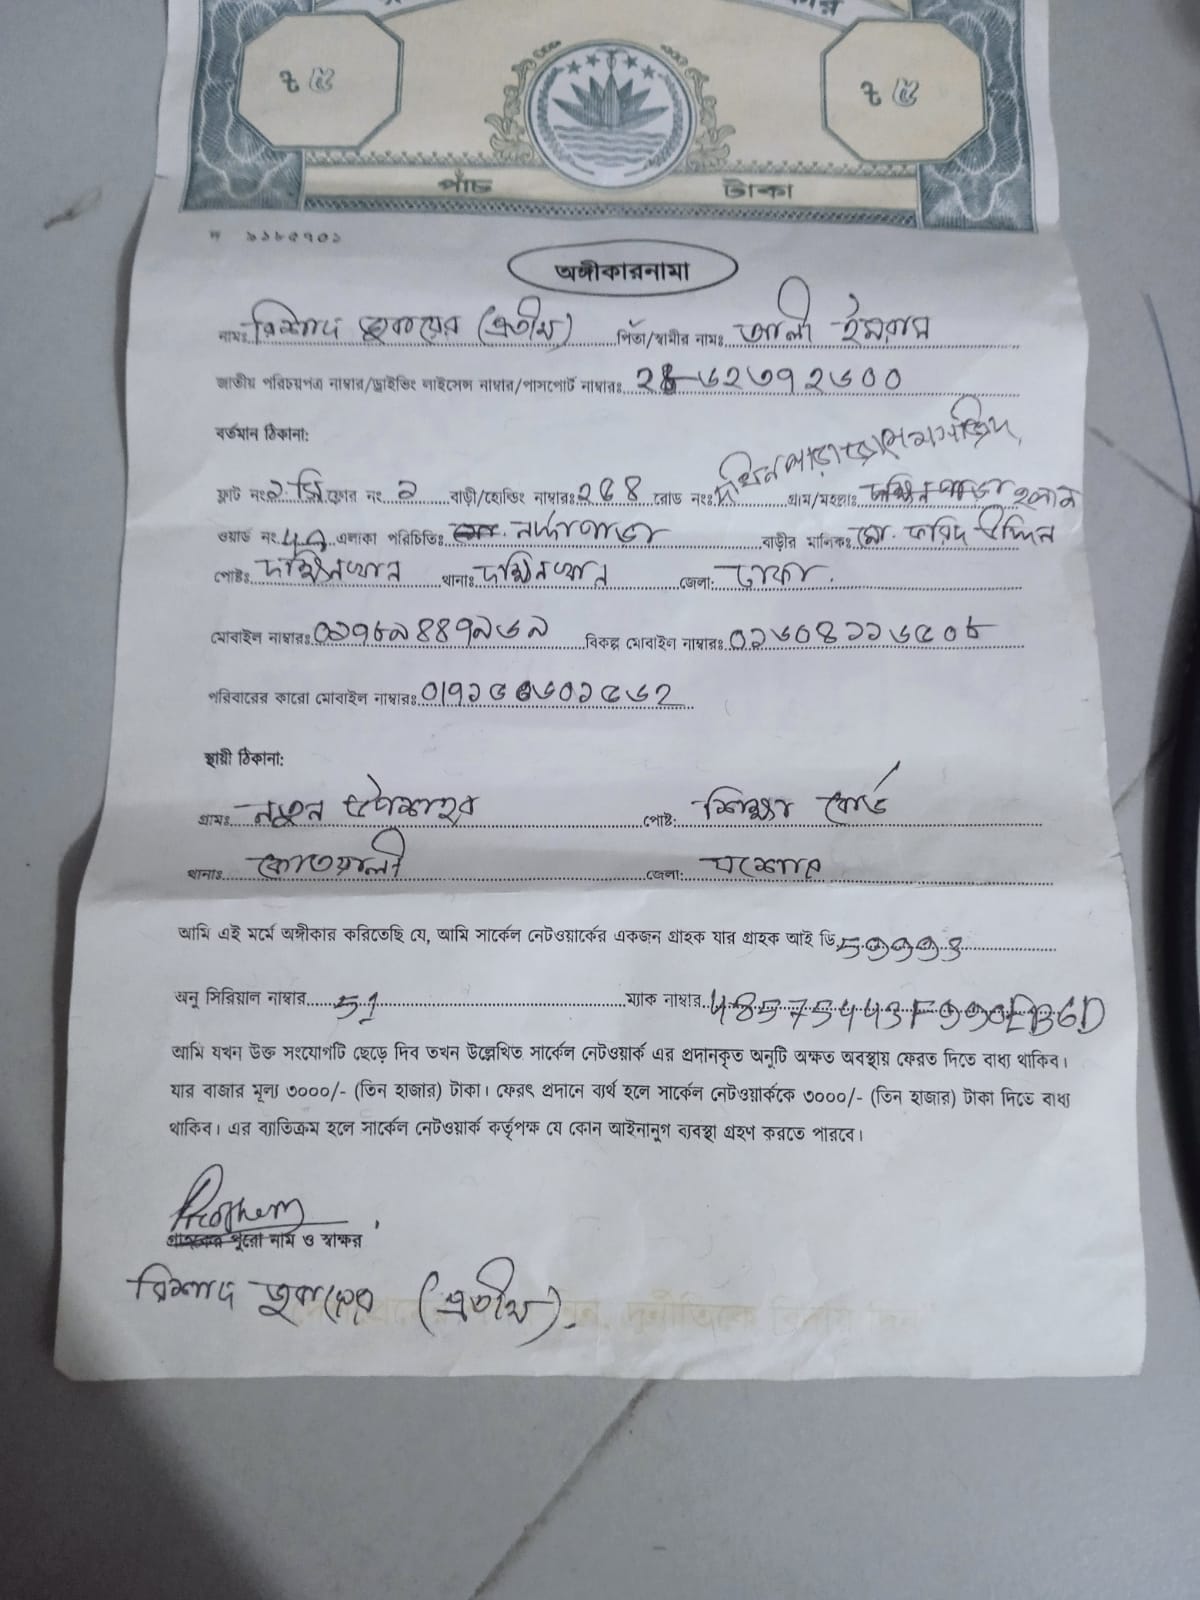 ৳ ৫ ৳ ৫
পাঁচ টাকা
অঙ্গীকারনামা
নামঃ রিশাদ (প্রতীম) পিতা/স্বামীর নামঃ আলী ইমরান
জাতীয় পরিচয়পত্র নাম্বার/ড্রাইভিং লাইসেন্স নাম্বার/পাসপোর্ট নাম্বারঃ
বর্তমান ঠিকানা:
ফ্লাট নং ২ সি ফ্লোর নং ২ বাড়ী/হোল্ডিং নাম্বারঃ ২৫৪ রোড নংঃ গ্রাম/মহল্লাঃ
ওয়ার্ড নং এলাকা পরিচিতিঃ নর্দ্দাপাড়া বাড়ীর মালিকঃ মো. ফরিদ উদ্দিন
পোষ্টঃ দক্ষিনখান থানাঃ দক্ষিনখান জেলা: ঢাকা.
মোবাইল নাম্বারঃ ০১৭৮৯৪৪৭৯৬৯ বিকল্প মোবাইল নাম্বারঃ ০১৬০৪১১৬৫০৮
পরিবারের কারো মোবাইল নাম্বারঃ
স্থায়ী ঠিকানা:
গ্রামঃ নতুন পোষ্ট: শিক্ষা বোর্ড
থানাঃ কোতয়ালী জেলা: যশোর
আমি এই মর্মে অঙ্গীকার করিতেছি যে, আমি সার্কেল নেটওয়ার্কের একজন গ্রাহক যার গ্রাহক আই ডি
অনু সিরিয়াল নাম্বার 51 ম্যাক নাম্বার
আমি যখন উক্ত সংযোগটি ছেড়ে দিব তখন উল্লেখিত সার্কেল নেটওয়ার্ক এর প্রদানকৃত অনুটি অক্ষত অবস্থায় ফেরত দিতে বাধ্য থাকিব।
যার বাজার মূল্য ৩০০০/- (তিন হাজার) টাকা। ফেরৎ প্রদানে ব্যর্থ হলে সার্কেল নেটওয়ার্ককে ৩০০০/- (তিন হাজার) টাকা দিতে বাধ্য
থাকিব। এর ব্যাতিক্রম হলে সার্কেল নেটওয়ার্ক কর্তৃপক্ষ যে কোন আইনানুগ ব্যবস্থা গ্রহণ করতে পারবে।
গ্রাহকের পুরো নাম ও স্বাক্ষর
রিশাদ (প্রতীম)